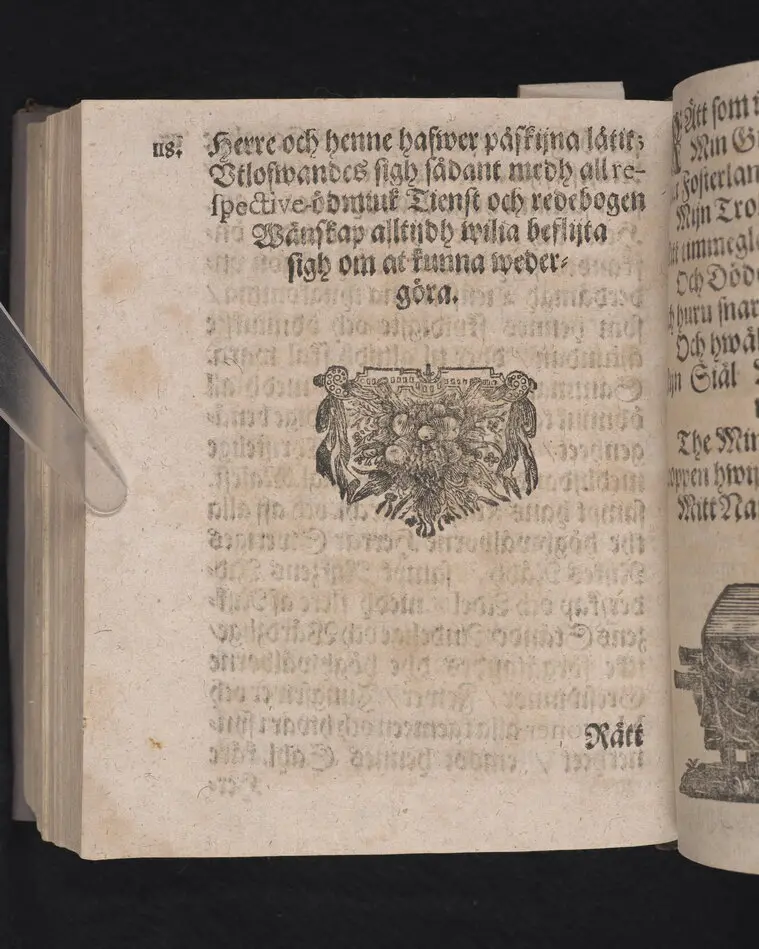 118. Herre och henne hafwer påskijna låtit;
Vtlofwandes sigh sådant medh all re-
spective-ödmiuk Tienst och redebogen
Wänskap alltijdh wilia beflijta
sigh om at kunna weder-
göra.
Rätt
Ått som
Min
Fosterlan
Mijn Tro
Och Död
huru snar
Och hwäl
Siäl
The Min
hwij
Mitt Na